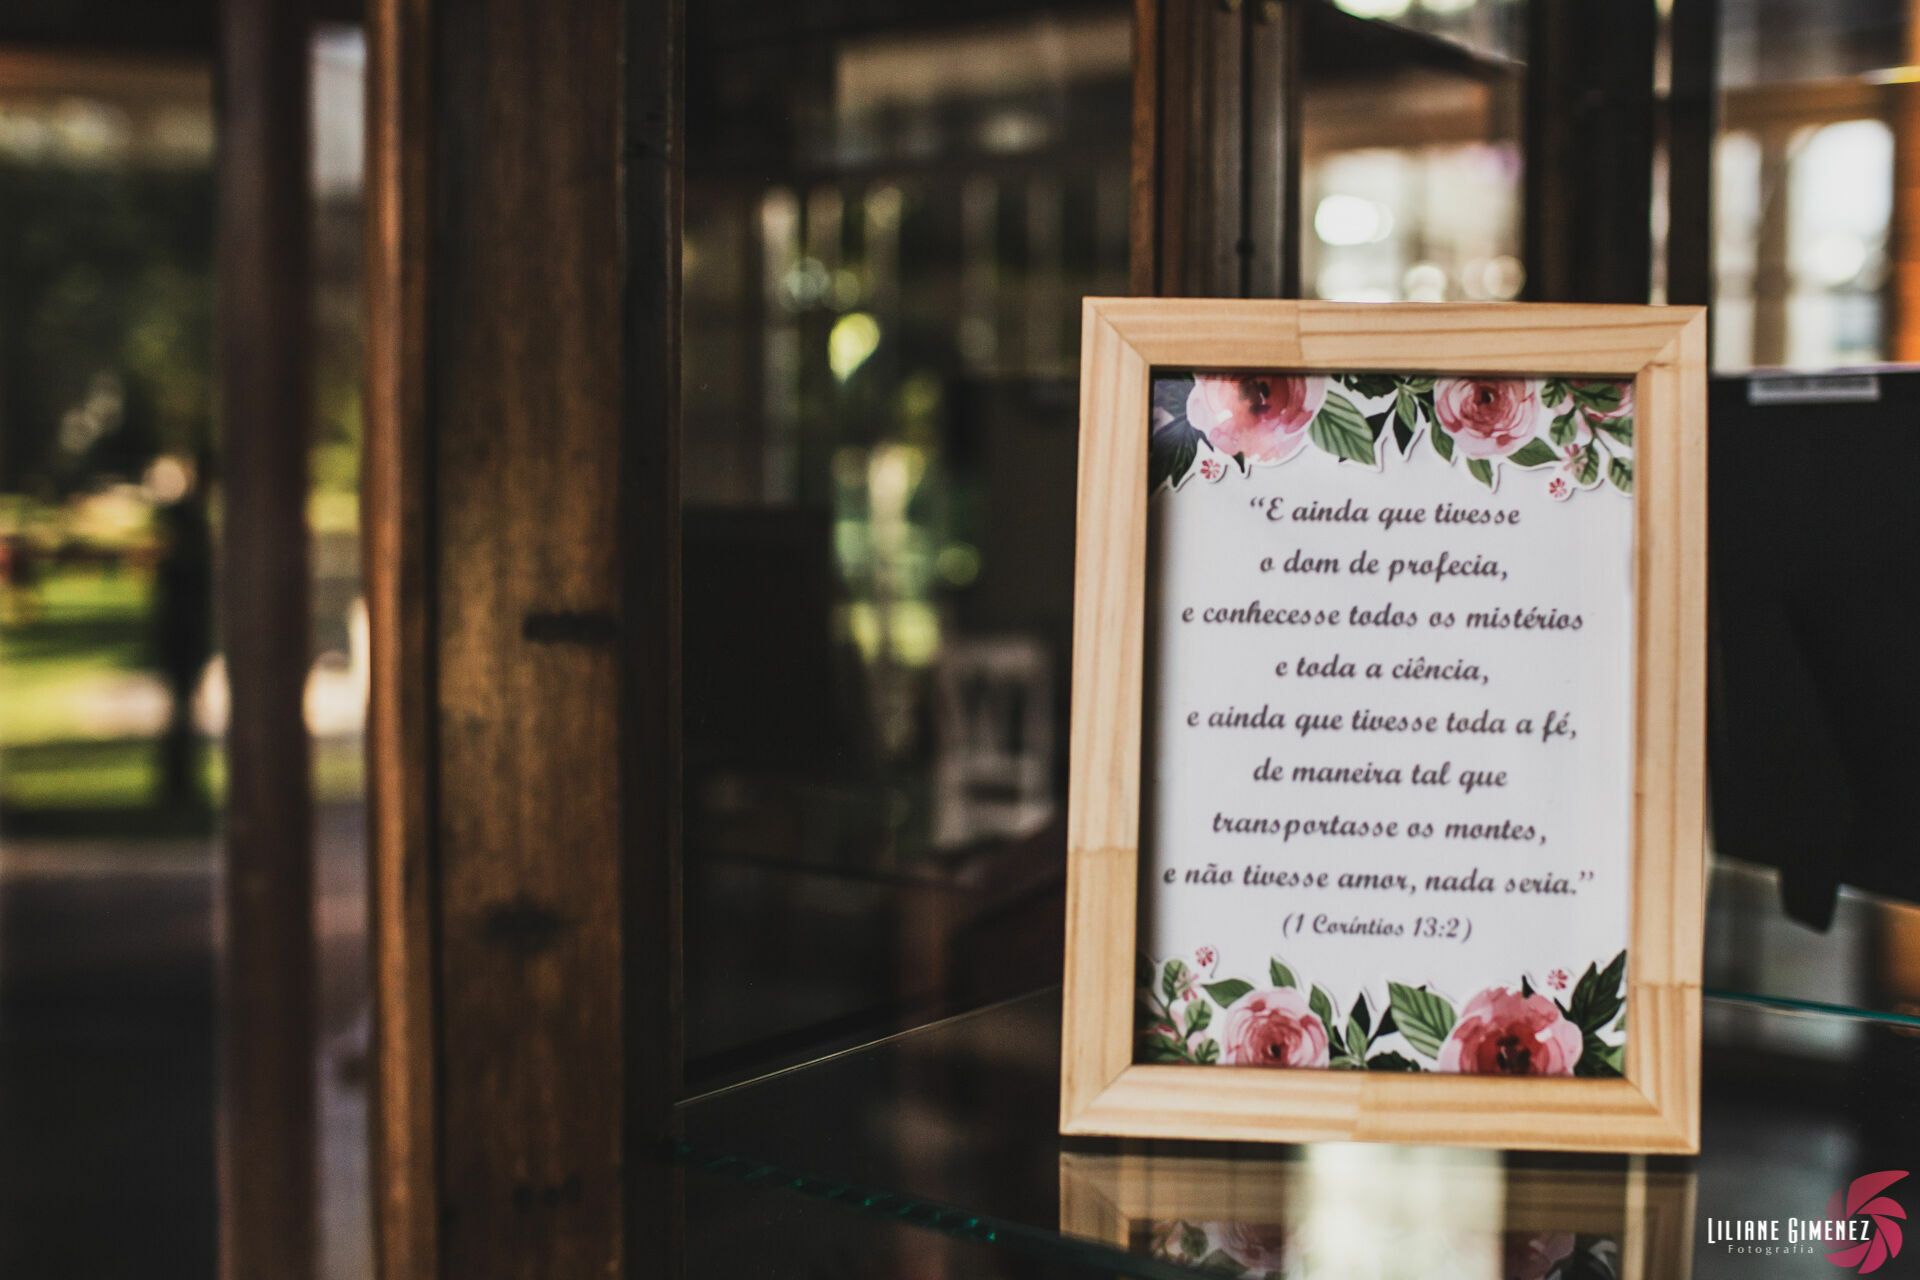 “E ainda que tivesse
o dom de profecia,
e conhecesse todos os mistérios
e toda a ciência,
e ainda que tivesse toda a fé,
de maneira tal que
transportasse os montes,
e não tivesse amor, nada seria.”
(1 Coríntios 13:2)
LILIANE GIMENEZ
Fotografia